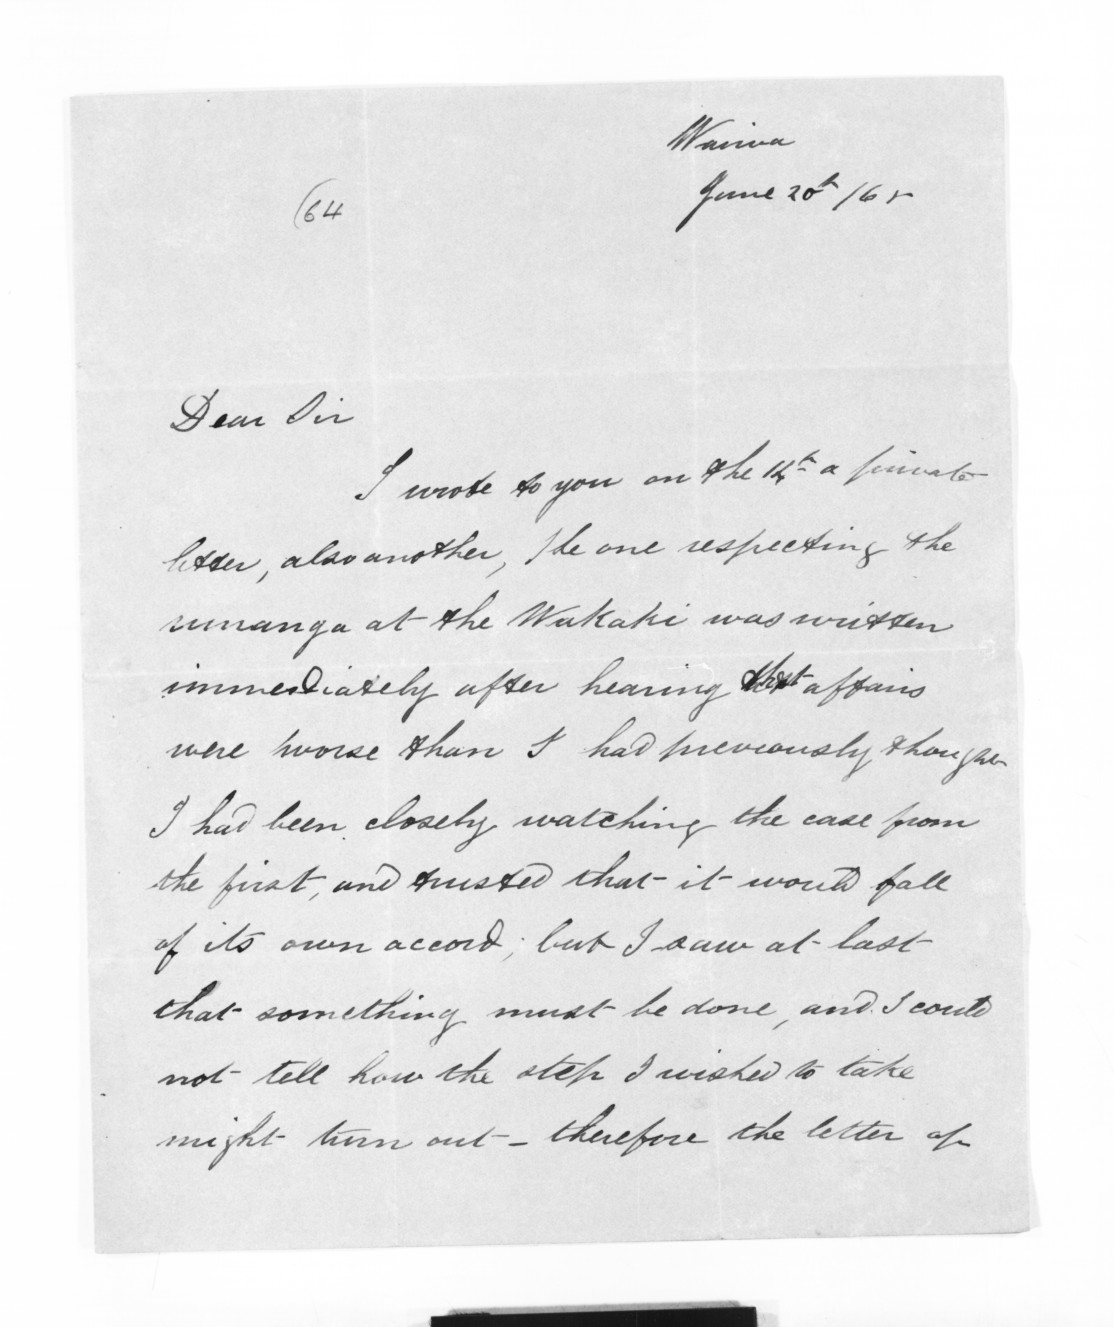 Wairoa
June 20th /65
(64
Dear Sir
I wrote to you on the 14th a private
letter, also another, the one respecting the
runanga at the Wakaki was written
immediately after hearing that affairs
were worse than I had previously thought
I had been closely watching the case from
the first, and trusted that it would fall
of its own accord; but I saw at last
that something must be done, and I could
not tell how the step I wished to take
might turn out – therefore the letter of